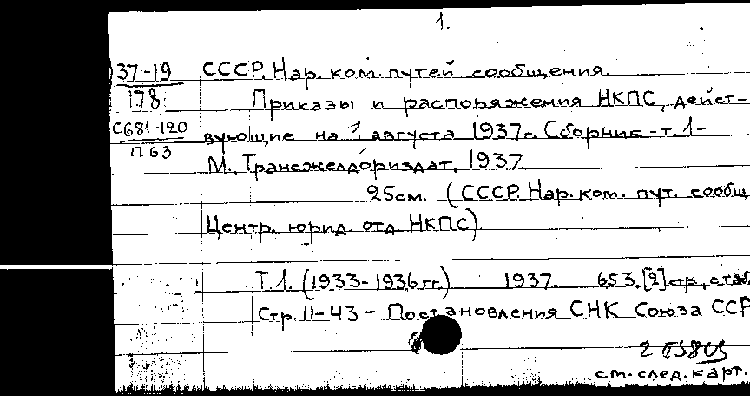 1.
37-19 СССР. Нар. ком. путей сообщения.
178 Приказы и распоряжения НКПС, дейст-
С681-120 вующие на 1 августа 1937г. Сборник-т.1-
П63 М., Трансжелдориздат, 1937
25см. (СССР. Нар. ком. пут. сообщ
Центр. юрид. отд НКПС).
Т.1. (1933-1936гг.) 1937. 653,[2]стр,
Стр. 11-43 - Постановления СНК Союза ССР
см. след. карт.